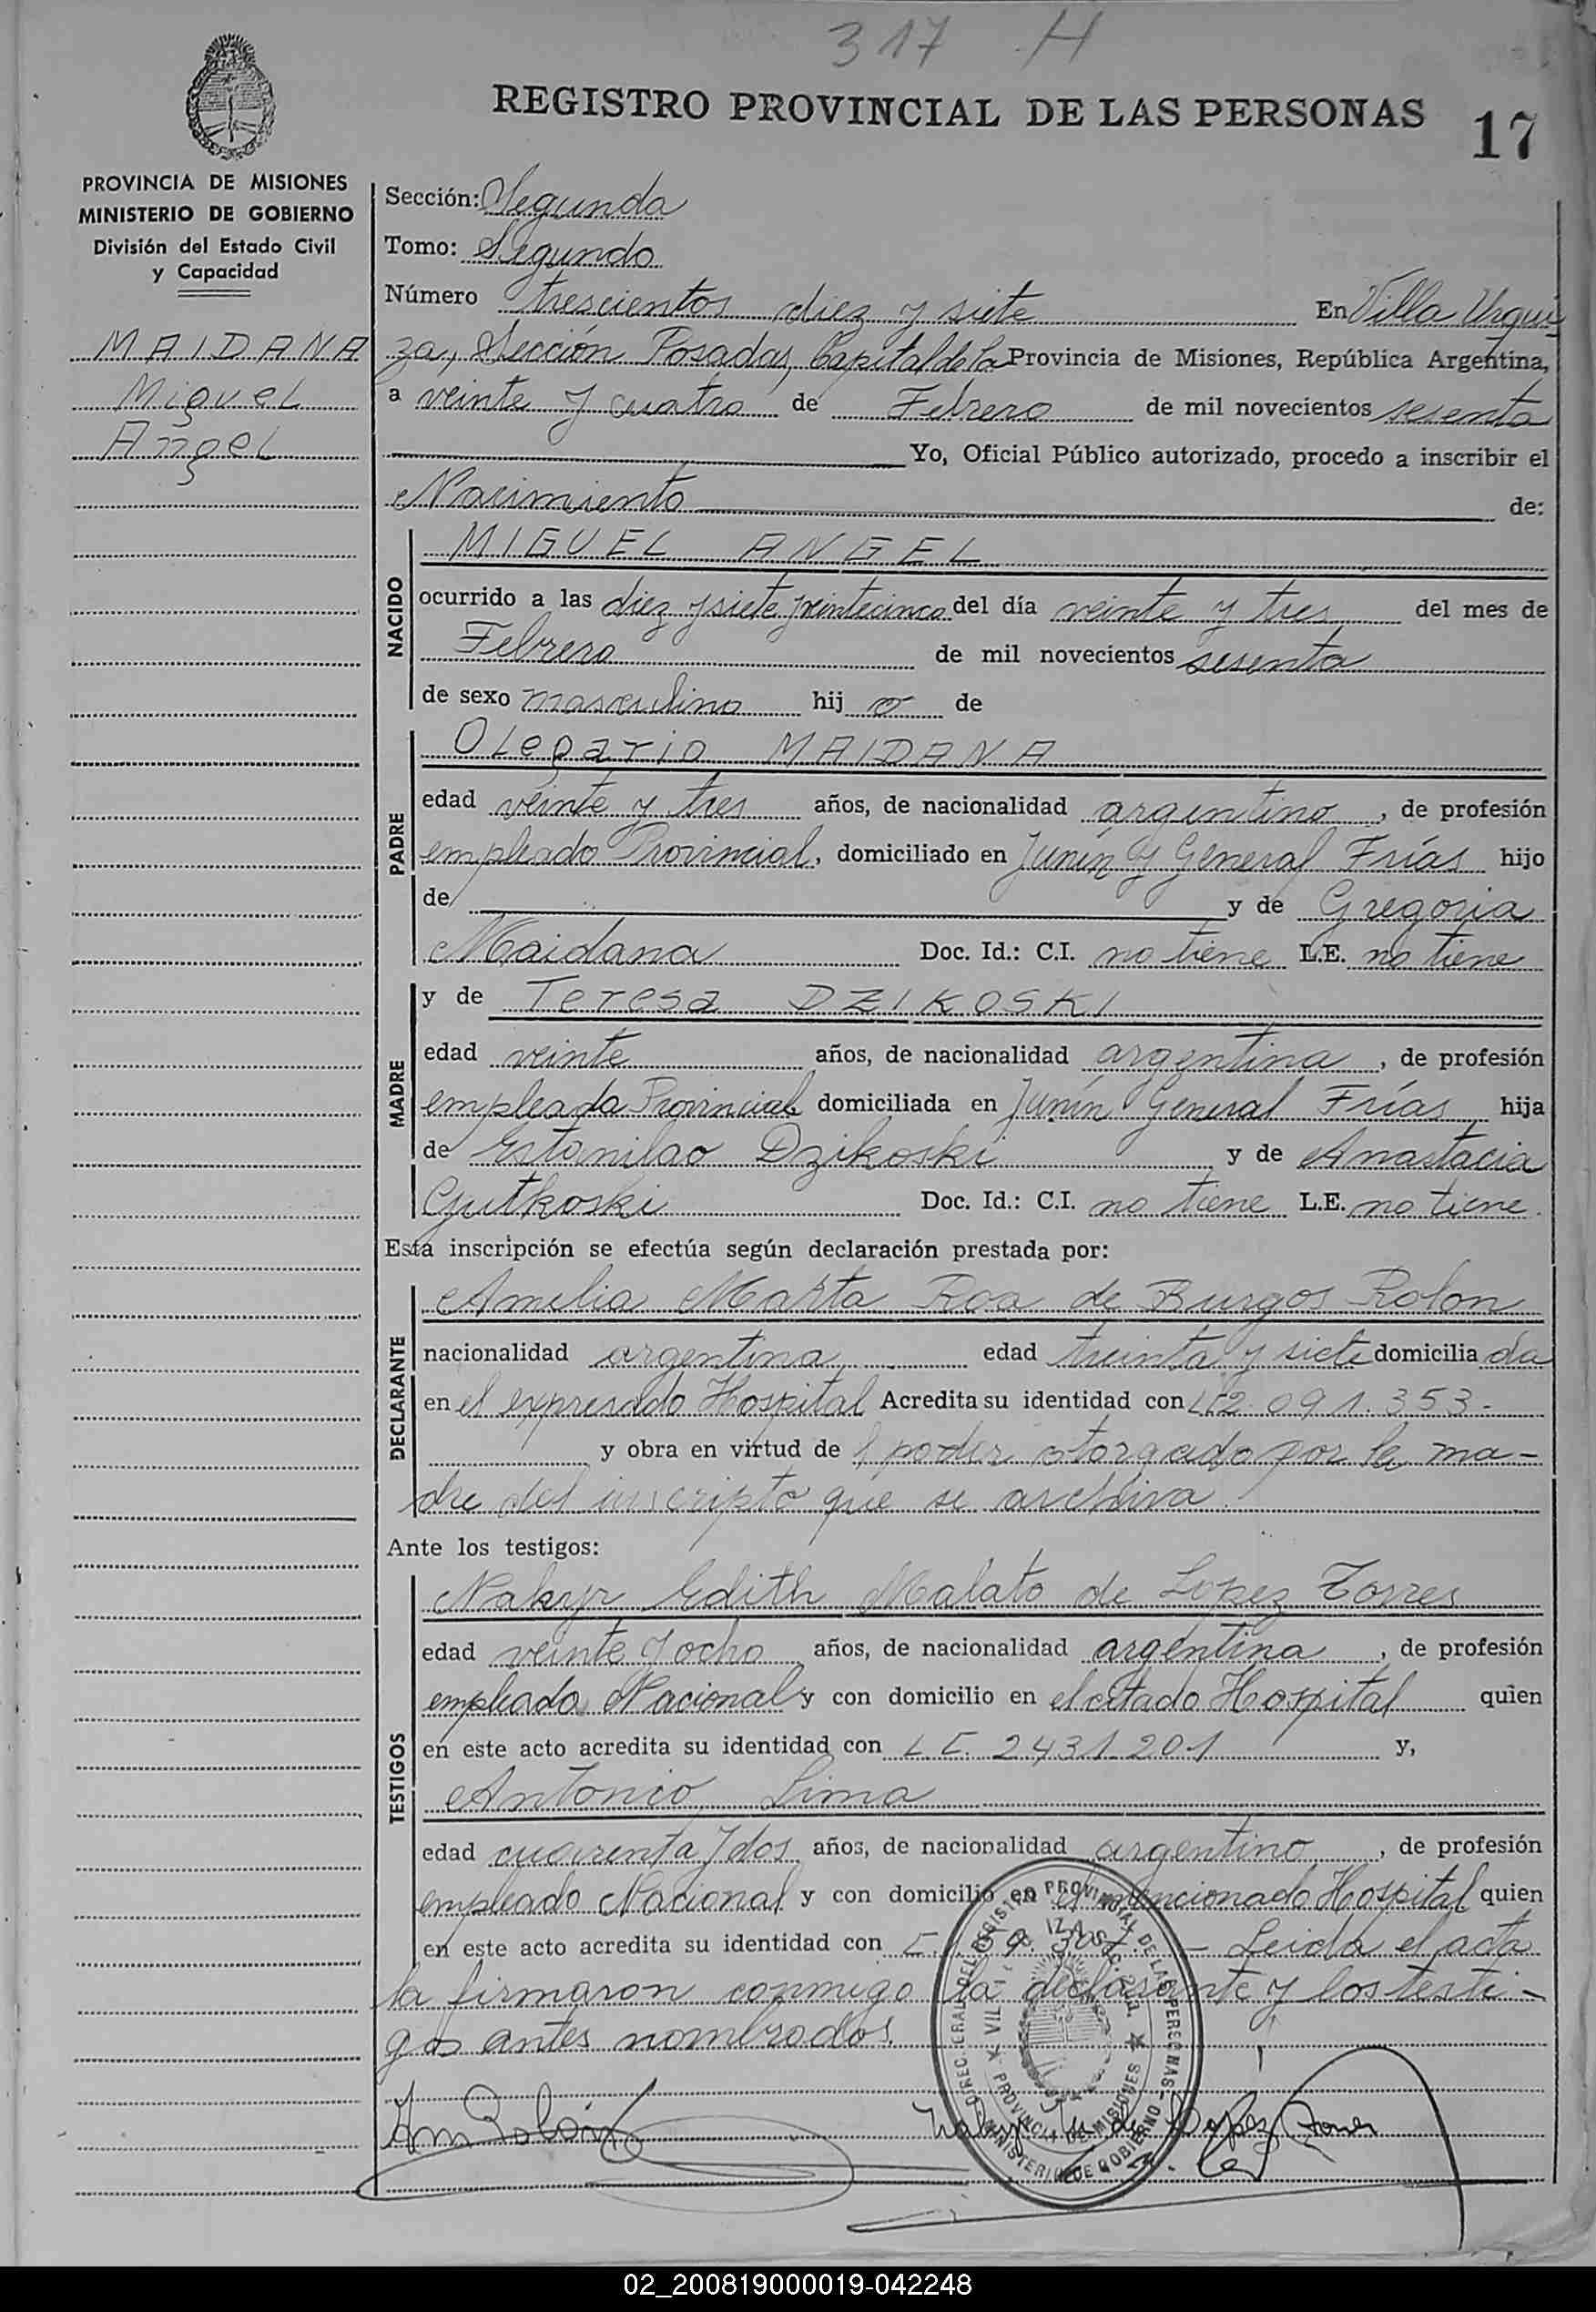 317 H
REGISTRO PROVINCIAL DE LAS PERSONAS 17
PROVINCIA DE MISIONES
MINISTERIO DE GOBIERNO
División del Estado Civil
y Capacidad
MAIDANA
Miguel
Angel
Sección: Segunda
Tomo: Segundo
Número trescientos diez y siete En Villa Urqui
za, Sección Posadas, Capital de la Provincia de Misiones, República Argentina,
a veinte y cuatro de Febrero de mil novecientos sesenta
Yo, Oficial Público autorizado, procedo a inscribir el
Nacimiento de:
NACIDO
MIGUEL ANGEL
ocurrido a las diez y siete y veintecinco del día veinte y tres del mes de
Febrero de mil novecientos sesenta
de sexo masculino hij o de
PADRE
Olegario MAIDANA
edad veinte y tres años, de nacionalidad argentino, de profesión
empleado Provincial, domiciliado en Junín y General Frías hijo
de y de Gregoria
Maidana Doc. Id.: C.I. no tiene L.E. no tiene
MADRE
y de Teresa DZIKOSKI
edad veinte años, de nacionalidad argentina, de profesión
empleada Provincial domiciliada en Junín General Frías hija
de Estanilao Dzikoski y de Anastacia
Gutkoski Doc. Id.: C.I. no tiene L.E. no tiene.
Esta inscripción se efectúa según declaración prestada por:
DECLARANTE
Amelia Marta Roa de Burgos Rolon
nacionalidad argentina edad treinta y siete domicilia da
en el expresado Hospital Acredita su identidad con L.C. 2.091.353-
y obra en virtud de l poder otorgado por la ma-
dre del inscripto que se archiva.
Ante los testigos:
TESTIGOS
Nahyr Edith Malato de Lopez Torres
edad veinte y ocho años, de nacionalidad argentina, de profesión
empleada Nacional y con domicilio en el citado Hospital quien
en este acto acredita su identidad con L.C. 2431.201 y,
Antonio Lima
edad cuarenta y dos años, de nacionalidad argentino, de profesión
empleado Nacional y con domicilio en el mencionado Hospital quien
en este acto acredita su identidad con Leida el acta
la firmaron conmigo la declarante y los testi-
gos antes nombrados.
PROVINCIA DE MISIONES
MINISTERIO DE GOBIERNO
02_200819000019-042248